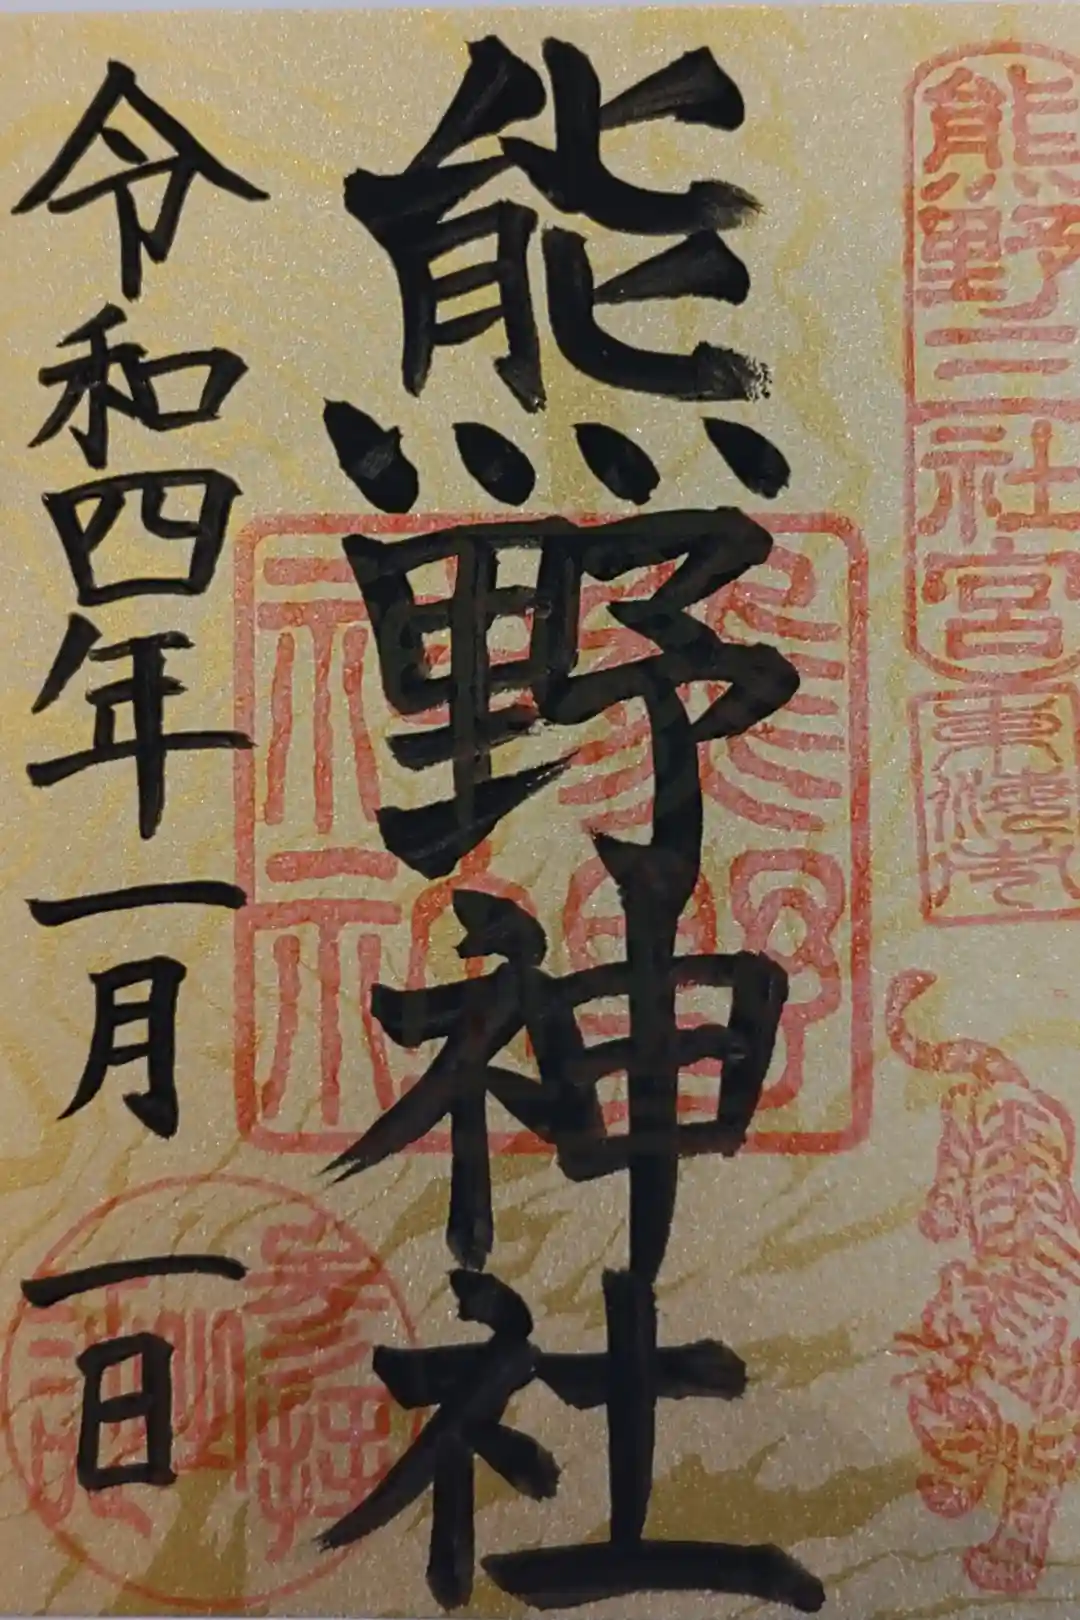 熊野三社宮
奉拝
熊野神社
熊野神社
令和四年一月一日